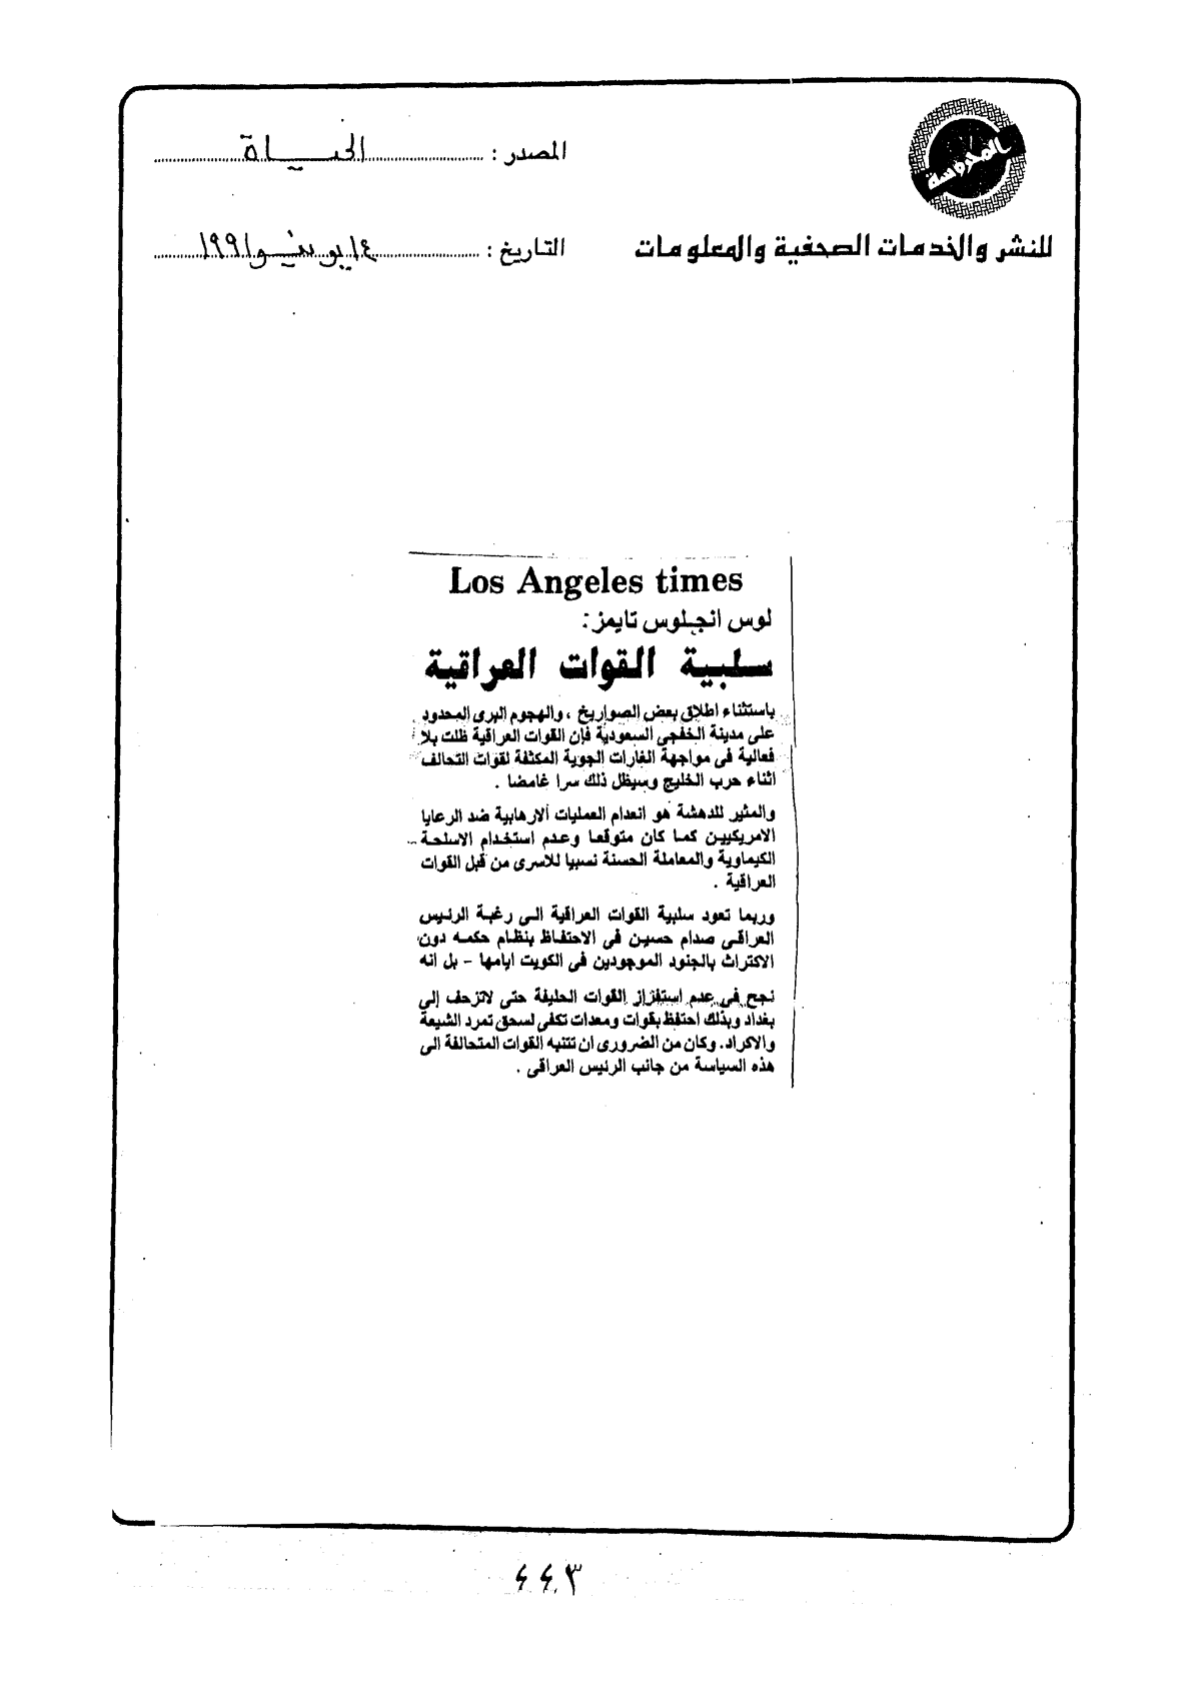 المحروسة
المصدر : الحيـاة
للنشر والخدمات الصحفية والمعلومات
التاريخ : ١٤ يونيو ١٩٩١
Los Angeles times
لوس انجلوس تايمز :
سلبية القوات العراقية
باستثناء اطلاق بعض الصواريخ ، والهجوم البرى المحدود
على مدينة الخفجى السعودية فإن القوات العراقية ظلت بلا
فعالية فى مواجهة الغارات الجوية المكثفة لقوات التحالف
اثناء حرب الخليج وسيظل ذلك سرا غامضا .
والمثير للدهشة هو انعدام العمليات الارهابية ضد الرعايا
الامريكيين كما كان متوقعا وعدم استخدام الاسلحة
الكيماوية والمعاملة الحسنة نسبيا للاسرى من قبل القوات
العراقية .
وربما تعود سلبية القوات العراقية الى رغبة الرئيس
العراقى صدام حسين فى الاحتفاظ بنظام حكمه دون
الاكتراث بالجنود الموجودين فى الكويت ايامها - بل انه
نجح فى عدم استفزاز القوات الحليفة حتى لاتزحف إلى
بغداد وبذلك احتفظ بقوات ومعدات تكفى لسحق تمرد الشيعة
والاكراد. وكان من الضرورى ان تتنبه القوات المتحالفة الى
هذه السياسة من جانب الرئيس العراقى .
٤٤٣